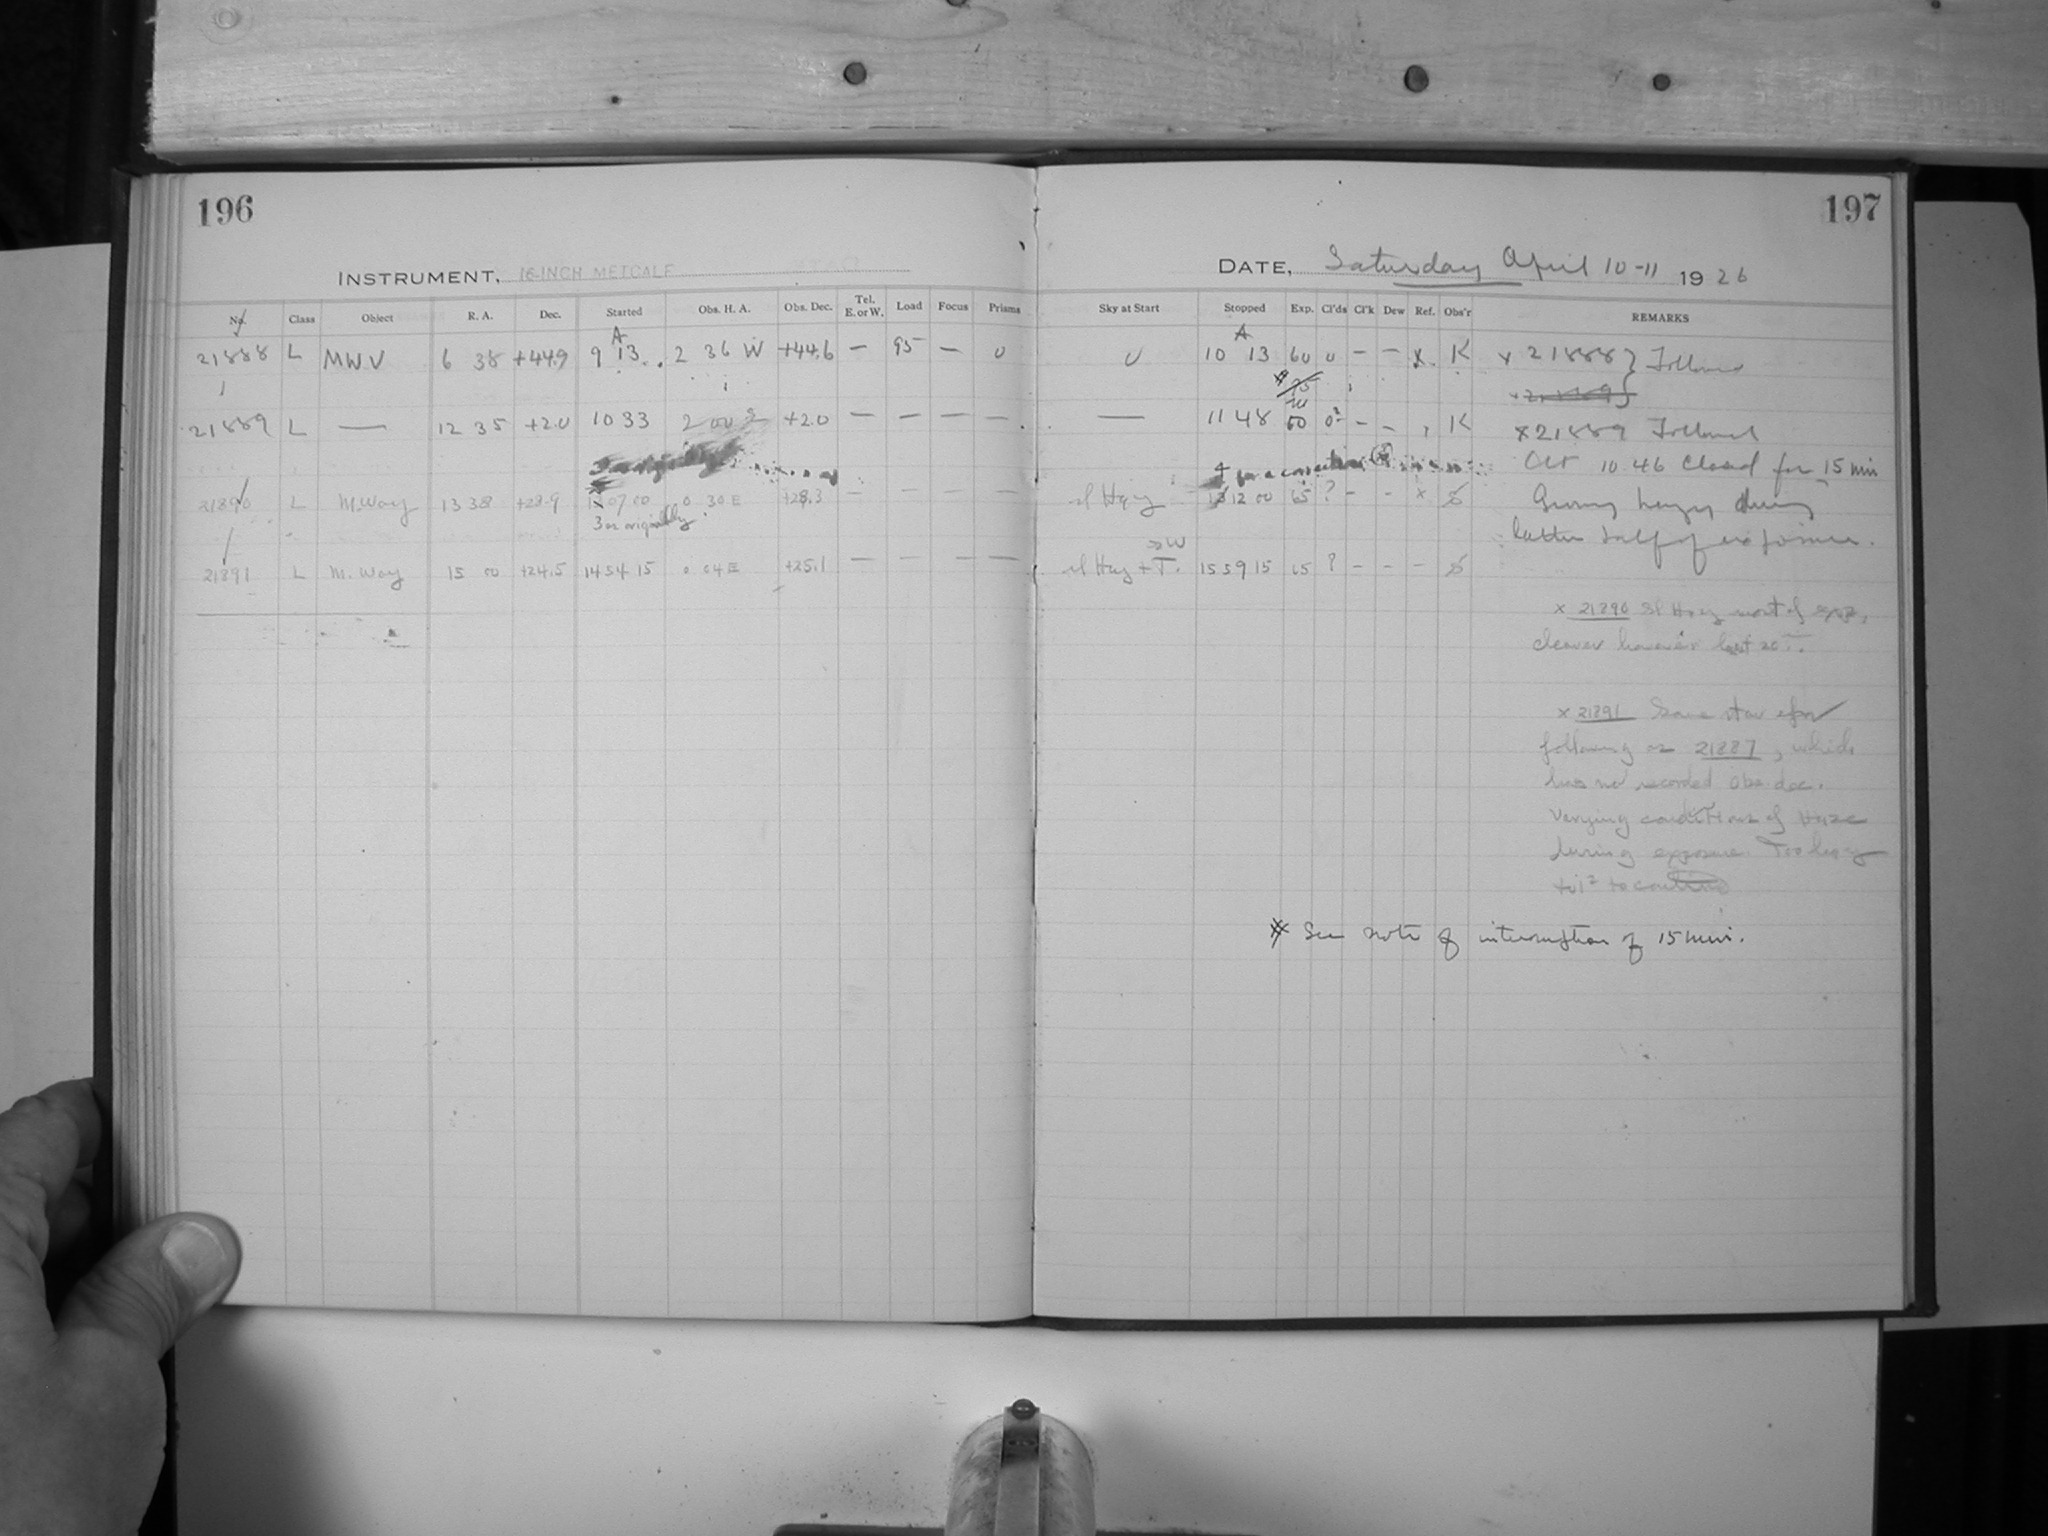 196
197
INSTRUMENT, 16-INCH METCALF
DATE, Saturday April 10-11 1926
No. Class Object R. A. Dec. Started Obs. H. A. Obs. Dec. Tel. E. or W. Load Focus Prisms Sky at Start Stopped Exp. Cl'ds Cl'k Dew Ref. Obs'r REMARKS
A A
21888 L MWV 6 38 +44.9 9 13 2 36 W +44.6 — 95 — 0 0 10 13 60 0 — — x K x 21888 } Followed
21889 L — 12 35 +2.0 10 33 2 00 +2.0 — — — — — 11 48 60 0² — — K x 21889 Followed
Oct 10 46 Closed for 15 min
21890 L M.Way 13 38 +28.9 07 00 0 30 E +28.3 — — — — sl Hazy 12 00 65 ? — — x Growing hazy during
3 originally
latter half of exposure.
21891 L M. Way 15 00 +24.5 14 54 15 0 04 E +25.1 — — — — sl Hazy + T. 15 59 15 65 ? — — —
x 21890 Sl Hazy most of exp.,
clearer however last 20
x 21891 Same star for
following as 21887, which
has no recorded obs dec.
Varying conditions of Haze
during exposure. Too hazy
to continue
See note of interruption of 15 min.